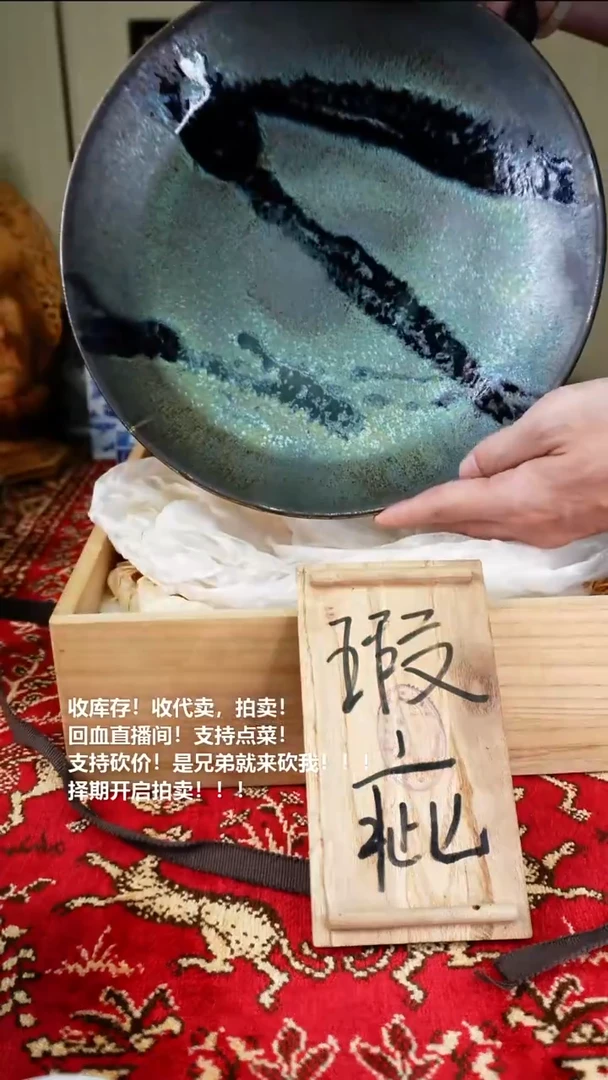 收库存！收代卖，拍卖！
回血直播间！支持点菜！
支持砍价！是兄弟就来砍我！！！
择期开启拍卖！！！
瑕
疵